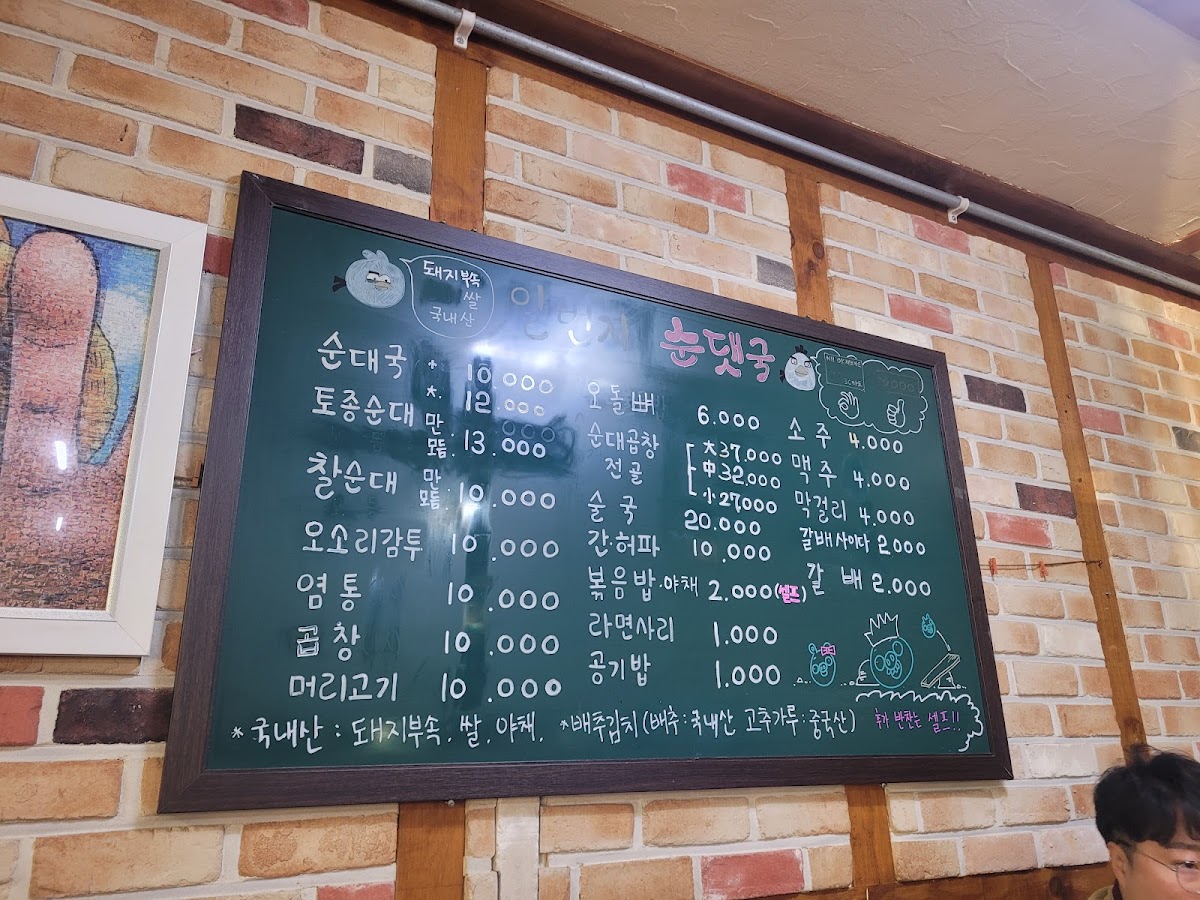 돼지부속
쌀
국내산
순댓국
순대국 * 10.000
*. 12.000
토종순대 만 모듬. 13.000
찰순대 만 모듬. 10.000
오소리감투 10.000
염통 10.000
곱창 10.000
머리고기 10.000
오돌뼈 6.000
순대곱창 전골
大37,000
中32,000
小27000
술국 20.000
간·허파 10.000
볶음밥·야채 2.000(셀프)
라면사리 1.000
공기밥 1.000
소주 4.000
맥주 4.000
막걸리 4.000
갈배사이다 2000
갈배 2.000
*국내산 : 돼지부속. 쌀. 야채. *배추김치(배추:국내산 고추가루:중국산)
추가 반찬는 셀프!!